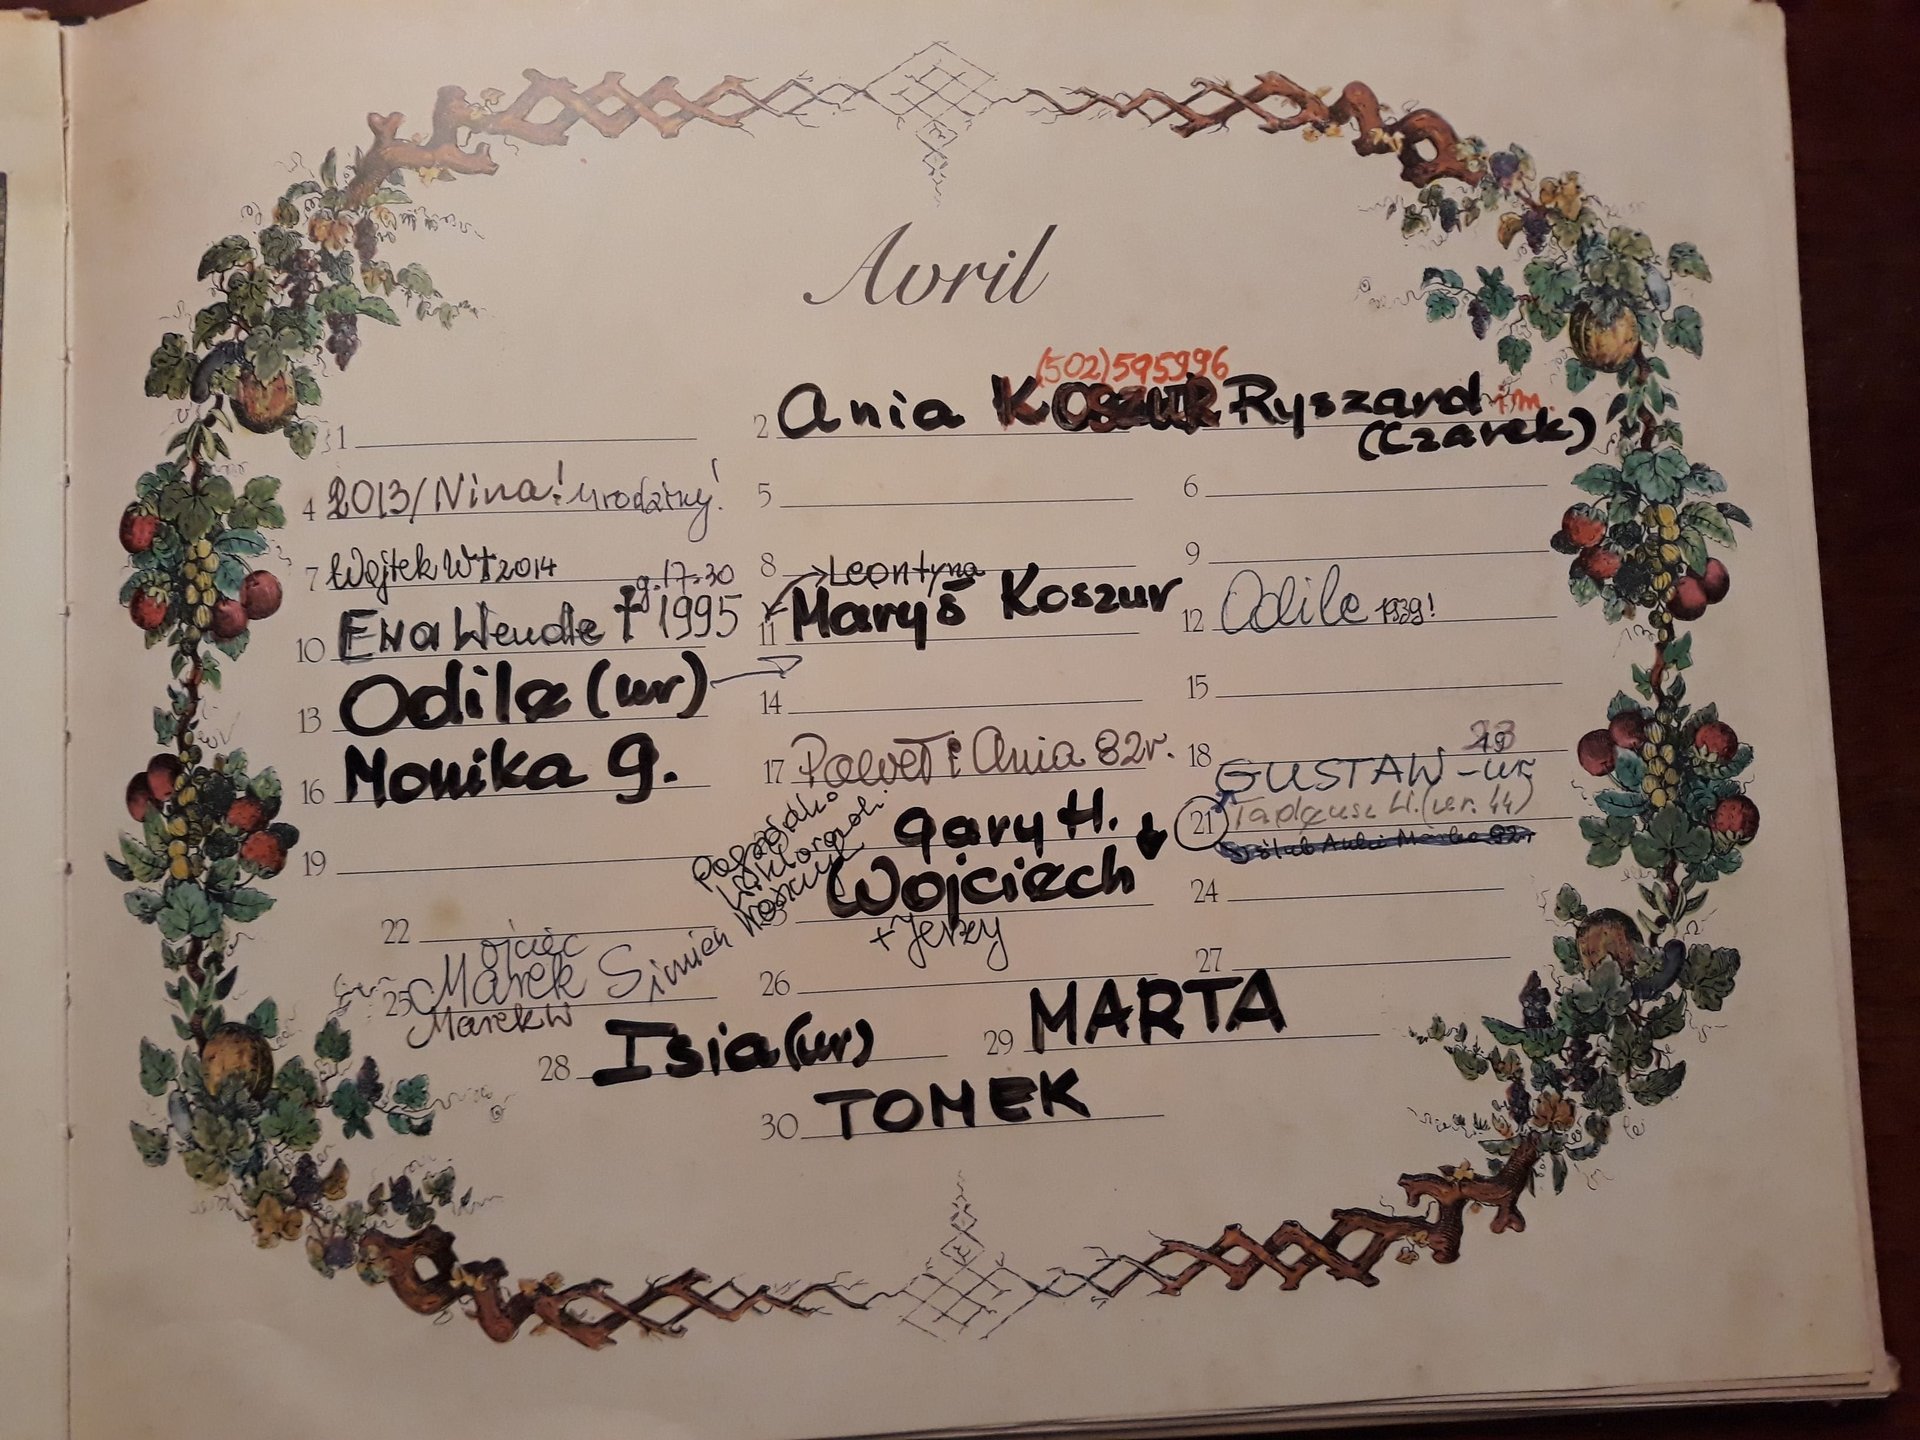 Avril
(502)595996
1
2 Ania KOSZUR Ryszard im.
(Czarek)
4 2013/Nina! urodziny!
5
6
7 Wojtek W † 2014
8 Leontyna
9
g. 17.30
10 Ewa Wendle † 1995
11 Maryś Koszur
12 Odile 1939!
13 Odile (ur)
14
15
16 Monika g.
17 Paweł i Ania 82r.
18
GUSTAW - ur
19
Gary H.
21 Tadeusz W. (ur. 44)
22
Wojciech
+ Jerzy
24
25 ojciec
Marek Simien
Marek W
26
27
28 Isia (ur)
29 MARTA
30 TOMEK